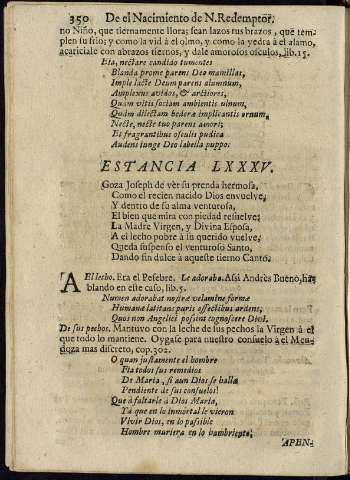 350 De el Nacimiento de N.Redemptor.
no Niño, que tiernamente llora; sean lazos tus brazos, que tem-
plen su frio; y como la vid à el olmo, y como la yedra à el alamo,
acariciale con abrazos tiernos, y dale amorosos osculos, lib.15.
Eta, nectare candido tumentes
Blanda prome parens Deo mamillas,
Imple lacte Deum parens alumnum,
Amplexus avidos, & arctiores,
Quam vitis sociam ambientis ulnum,
Quàm dilectam hederæ implicantis ornum,
Necte, necte tuo parens amori;
Et fragrantibus osculis pudica
Audens iunge Deo labella puppo:
ESTANCIA LXXXV.
Goza Joseph de vèr su prenda hermosa,
Como el recien nacido Dios envuelve,
Y dentro de su alma venturosa,
El bien que mira con piedad resuelve;
La Madre Virgen, y Divina Esposa,
A el lecho pobre à su querido vuelve;
Queda suspenso el venturoso Santo,
Dando fin dulce à aqueste tierno Canto.
A El lecho. Eta el Pesebre. Le adoraba. Assi Andrès Bueno, ha-
blando en este caso, lib.5.
Numen adorabat nostræ velamine formæ
Humanè latitans puris affectibus ardens,
Quos non Angelicè possint cognoscere Cæli.
De sus pechos. Mantuvo con la leche de sus pechos la Virgen à el
que todo lo mantiene. Oygase para nuestro consuelo à el Men-
doza mas discreto, cop.302.
O quan justamente el hombre
Fia todos sus remedios
De Maria, si aun Dios se halla
Pendiente de sus consuelos!
Que à faltarle à Dios Maria,
Yà que en lo inmortal le vieron
Vivir Dios, en lo passible
Hombre muriera en lo hambriento.
APEN-